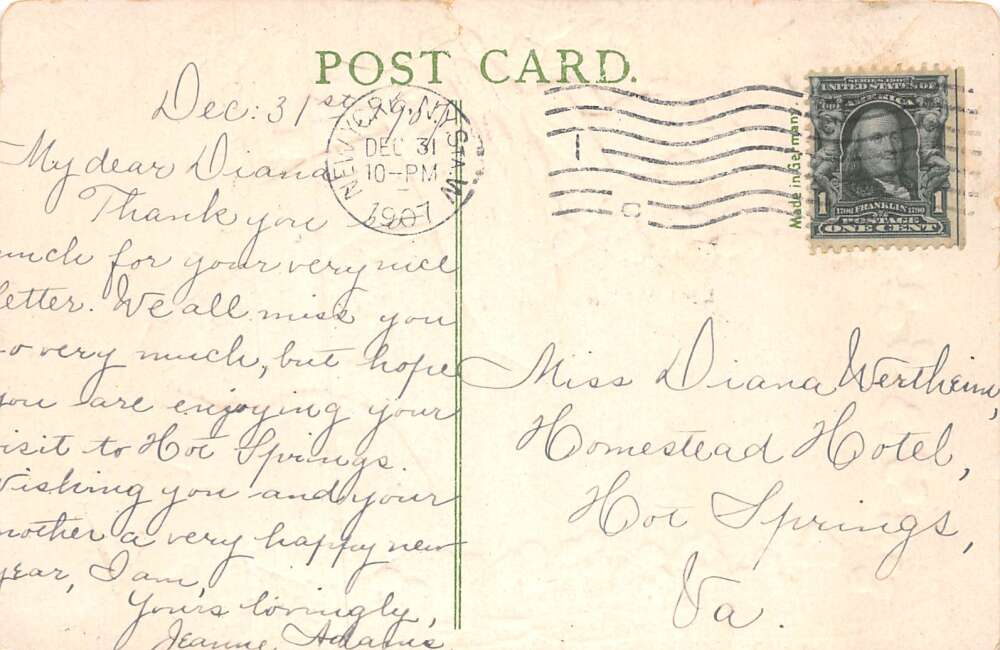 POST CARD.
Dec: 31st 1907.
My dear Diana
Thank you
much for your very nice
letter. We all miss you
so very much, but hope
you are enjoying your
visit to Hot Springs.
Wishing you and your
mother a very happy new
year, I am,
Yours lovingly,
Jeanne Adams
NEW YORK, N.Y. STA. W
DEC 31
10-PM
1907
1
C
Made in Germany.
SERIES 1902
UNITED STATES OF
AMERICA
1 1
1706 FRANKLIN 1790
POSTAGE
ONE CENT
Miss Diana Wertheim,
Homestead Hotel,
Hot Springs,
Va.